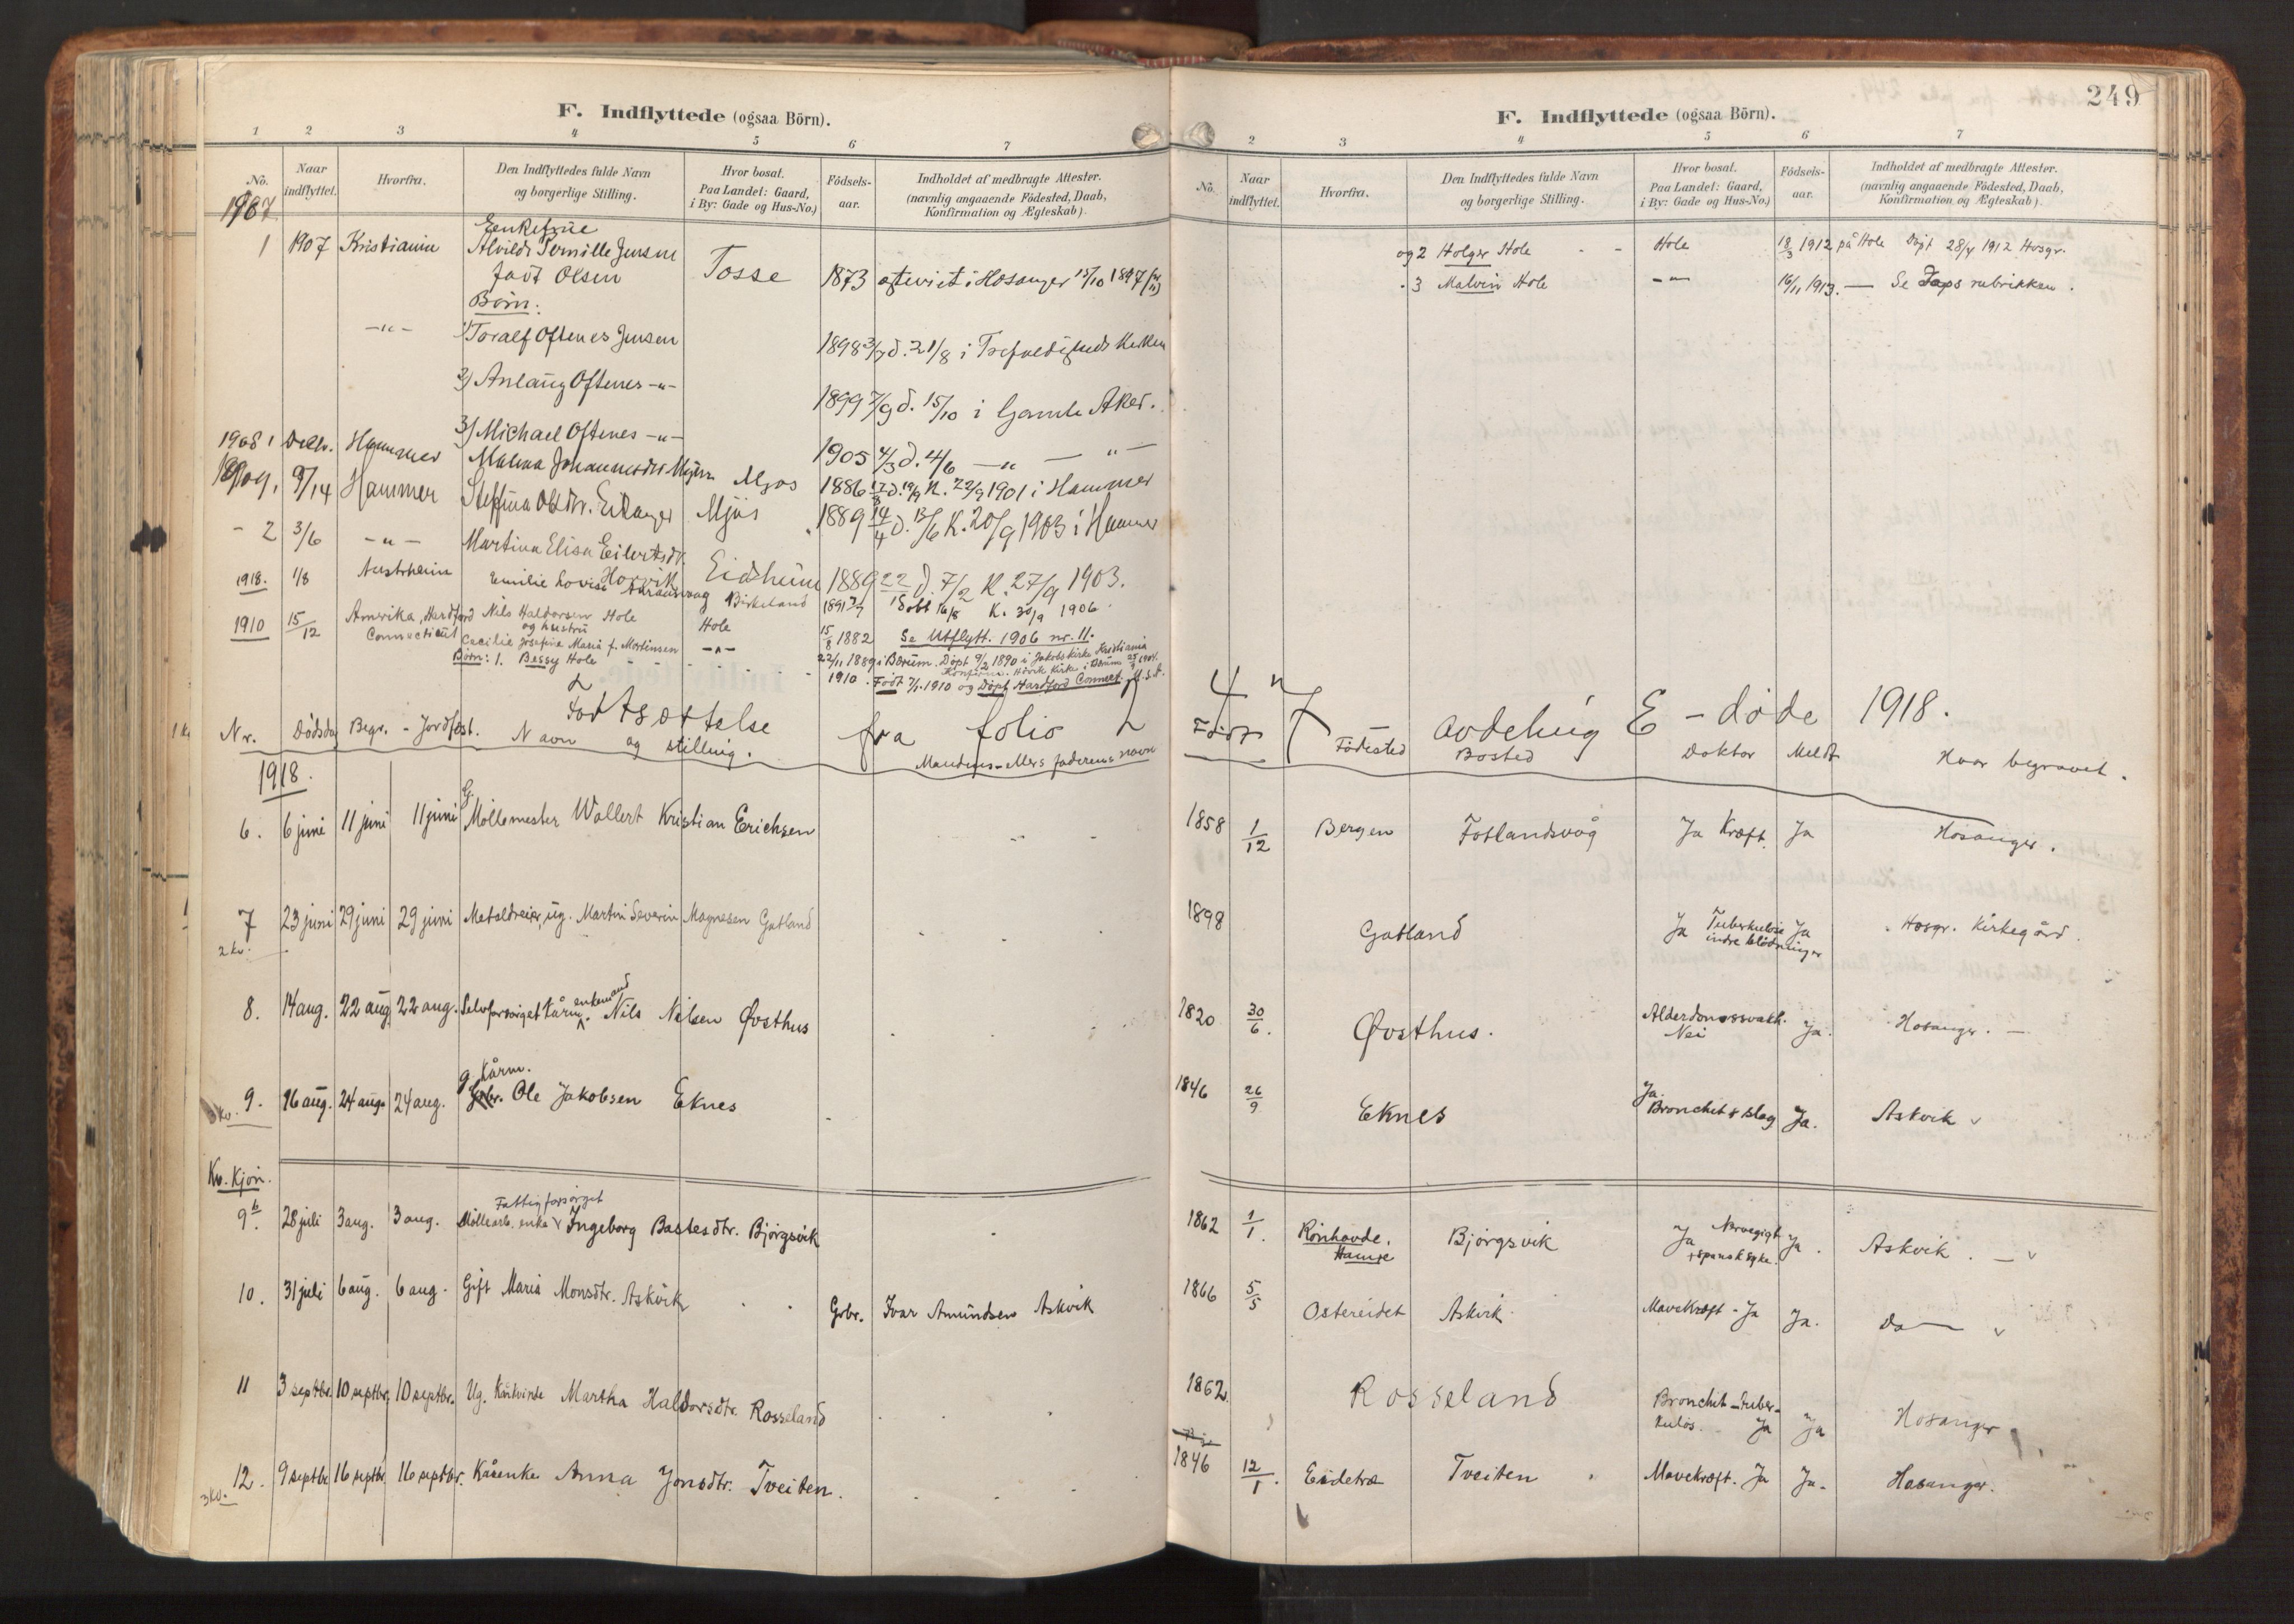 F. Indflyttede (ogsaa Börn).
1 2 3 4 5 6 7
No. Naar indflyttet. Hvorfra. Den Indflyttedes fulde Navn og borgerlige Stilling. Hvor bosat. Paa Landet: Gaard, i By: Gade og Hus-No.) Födsels-aar. Indholdet af medbragte Attester. (navnlig angaaende Födested, Daab, Konfirmation og Ægteskab).
1907
Enkefrue
1 1907 Kristiania Alvilde Pernille Jensen
født Olsen Tosse 1873 egteviet i Hosanger 15/10 1897
Børn:
-"- 1) Toralf Oftenes Jensen 1898 3/7 d. 21/8 i Trefoldigheds Kirken
2) Anlaug Oftenes -"- 1899 7/9 d. 15/10 i Gamle Aker.
3) Michael Oftenes -"- 1905 4/3 d. 4/6 -"- -"-
1908 1 Decbr. Hammer Malena Johannesdtr Mjøs Mjøs 1886 12/8 d. 19/9 K. 22/9 1901 i Hammer
1909, 1 9/14 Hammer Steffina Olsdtr. Eidanger Mjøs 1889 14/4 d. 13/6 K. 20/9 1903 i Hammer
- 2 3/6 -"- Martina Elisa Eilertsdt. Horvik Eidheim 1889 22 d. 7/2 K. 27/9 1903.
1918. 1/8 Austrheim Emilie Lovise Birkeland 1891 døbt 16/8 K. 30/9 1906.
1910 15/12 Amerika, Hardford Connecticut Nils Haldorsen Hole Hole 15/8 1882 Se Utflytt. 1906 nr. 11.
og hustru
Cecilie Josefine Maria f. Mortinsen -"- 22/11 1889 i Bærum. Døpt 9/2 1890 i Jakobskirke Kristiania
Konfirm. Høvik Kirke i Bærum 1904.
Børn: 1. Bessy Hole 1910. Født 7/1. 1910 og Døpt Hardford Connect. U.S.A.
Fortsættelse fra folio
Nr. Dødsdag Begr. - Jordfæst. Navn og stilling. Mandens eller faderens navn
1918.
6. 6 juni 11 juni 11 juni G. Møllemester Wollert Kristian Erichsen
7 23 juni 29 juni 29 juni Metaldreier, ug. Martin Severin Magnesen Gatland
2 kv.
8. 14 aug. 22 aug. 22 aug. Selvforsørget kårm. enkemand Nils Nilsen Øvsthus
9. 16 aug. 24 aug. 24 aug. g. Kårm. Gbr. Ole Jakobsen Eknes
3 kv.
Kv. kjøn.
Fattigforsørget
9b. 28 juli 3 aug. 3 aug. Møllearb. enke Ingeborg Bastesdtr. Bjørgsvik
10. 31 juli 6 aug. 6 aug. Gift Maria Monsdtr. Askvik Grbr. Ivar Amundsen Askvik
11 3 septbr. 10 septbr. 10 septbr. Ug. Kårkvinde Martha Haldorsdtr. Rosseland
12. 9 septbr 16 septbr. 16 septbr. Kårenke Anna Jonsdtr. Tveiten.
3 kv.
249
F. Indflyttede (ogsaa Börn).
2 3 4 5 6 7
No. Naar indflyttet. Hvorfra. Den Indflyttedes fulde Navn og borgerlige Stilling. Hvor bosat. Paa Landet: Gaard, i By: Gade og Hus-No.) Födsels-aar. Indholdet af medbragte Attester. (navnlig angaaende Födested, Daab, Konfirmation og Ægteskab).
og 2 Holger Hole Hole 18/3 1912 på Hole Døpt 28/4 1912 Hosgr.
3 Malvin Hole -"- 16/11 1913. — Se Daps rubrikken.
247 avdeling E - døde 1918.
Født Fødested Bosted Doktor Meldt Hvor begravet.
1858 1/12 Bergen Fotlandsvåg Ja Kræft. Ja Hosanger.
1898 Gatland Ja Tuberkuløse indre blødninger Ja Hosgr. Kirkegård.
1820 30/6. Øvsthus. Alderdomssvakh. Nei Ja. Hosanger. —
1846 26/9 Eknes Ja. Bronchit & slag Ja. Askvik
1862 1/1. Rønhovde, Hamre Bjørgsvik Ja + spansk syke. Ja. Askvik. —
1866 5/5 Ostereidet Askvik Mavekræft - Ja Ja. Do —
1862. Rosseland Bronchit - tuberkuløs. Ja Ja Hosanger
1846 12/1. Eidetræ Tveiten Mavekræft. Ja Ja. Hosanger.